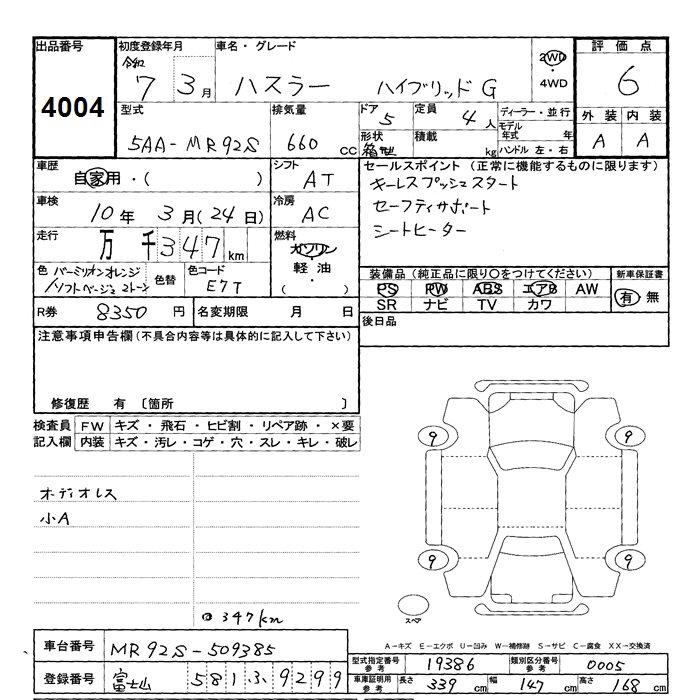 出品番号 初度登録年月 車名・グレード 評価点
4004 令和 7 3月 ハスラー ハイブリッドG 2WD・4WD 6
型式 排気量 ドア 定員 ディーラー・並行 外装 内装
5AA-MR92S 660 CC 5 4人 モデル年式 年 A A
形状 箱型 積載 kg ハンドル 左・右
車歴 自家用・( ) シフト AT セールスポイント(正常に機能するものに限ります)
キーレスプッシュスタート
車検 10年 3月(24日) 冷房 AC セーフティサポート
シートヒーター
走行 万 千347km 燃料 ガソリン・軽油・( )
色 バーミリオンオレンジ/ソフトベージュ2トーン 色替 色コード E7T
装備品(純正品に限り〇をつけてください) 新車保証書
PS PW ABS エアB AW 有・無
SR ナビ TV カワ
R券 8350円 名変期限 月 日 後日品
注意事項申告欄(不具合内容等は具体的に記入して下さい)
修復歴 有 〔箇所 〕
検査員記入欄 FW キズ・飛石・ヒビ割・リペア跡・×要
内装 キズ・汚レ・コゲ・穴・スレ・キレ・破レ
9 9
オーディオレス
小A
9 9
スペア
メ347km
A-キズ E-エクボ U-凹み W-補修跡 S-サビ C-腐食 XX-交換済
車台番号 MR92S-509385
型式指定番号 参考 19386 類別区分番号 参考 0005
登録番号 富士山 581ふ9299
車庫証明用 参考 長さ 339cm 幅 147cm 高さ 168cm